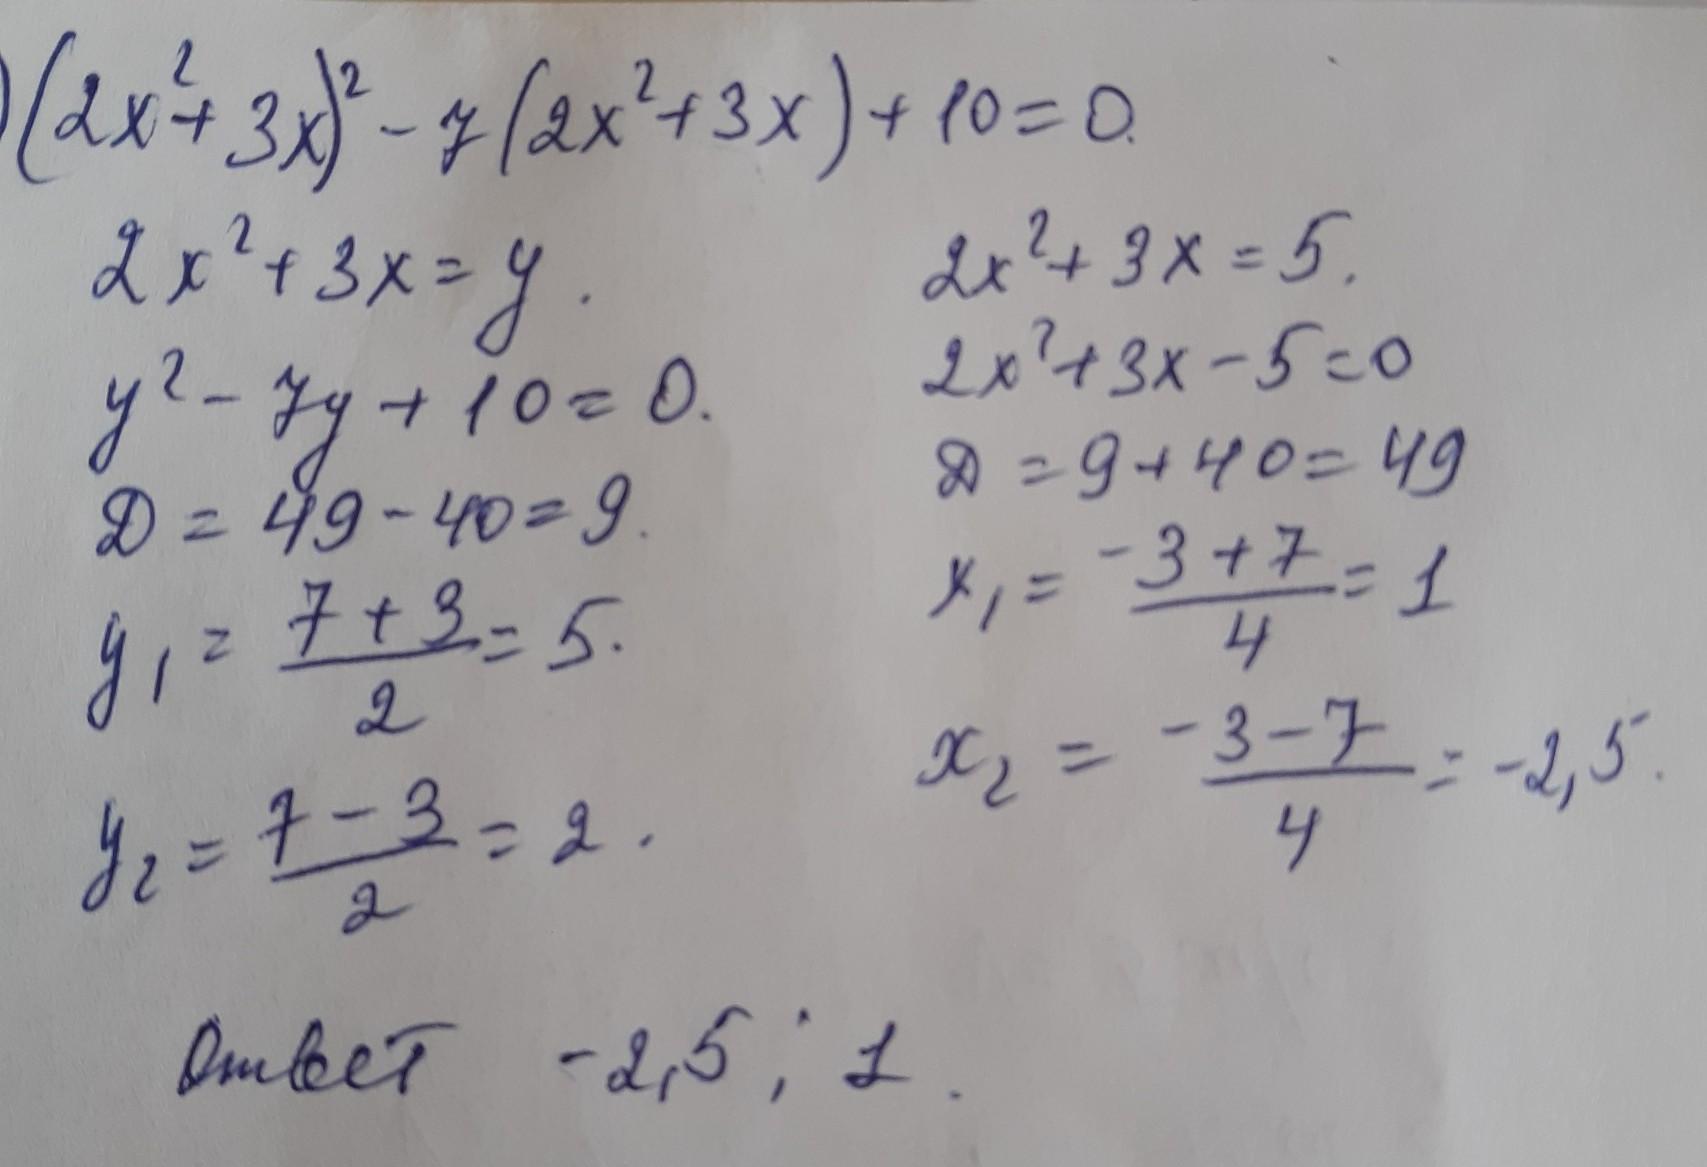 ) (2x²+3x)² - 7(2x²+3x) + 10 = 0.
2x²+3x = y.
y² - 7y + 10 = 0.
D = 49 - 40 = 9.
y₁ = (7+3)/2 = 5.
y₂ = (7-3)/2 = 2.
2x²+3x = 5.
2x²+3x-5=0
D = 9+40 = 49
x₁ = (-3+7)/4 = 1
x₂ = (-3-7)/4 = -2,5.
Ответ -2,5; 1.